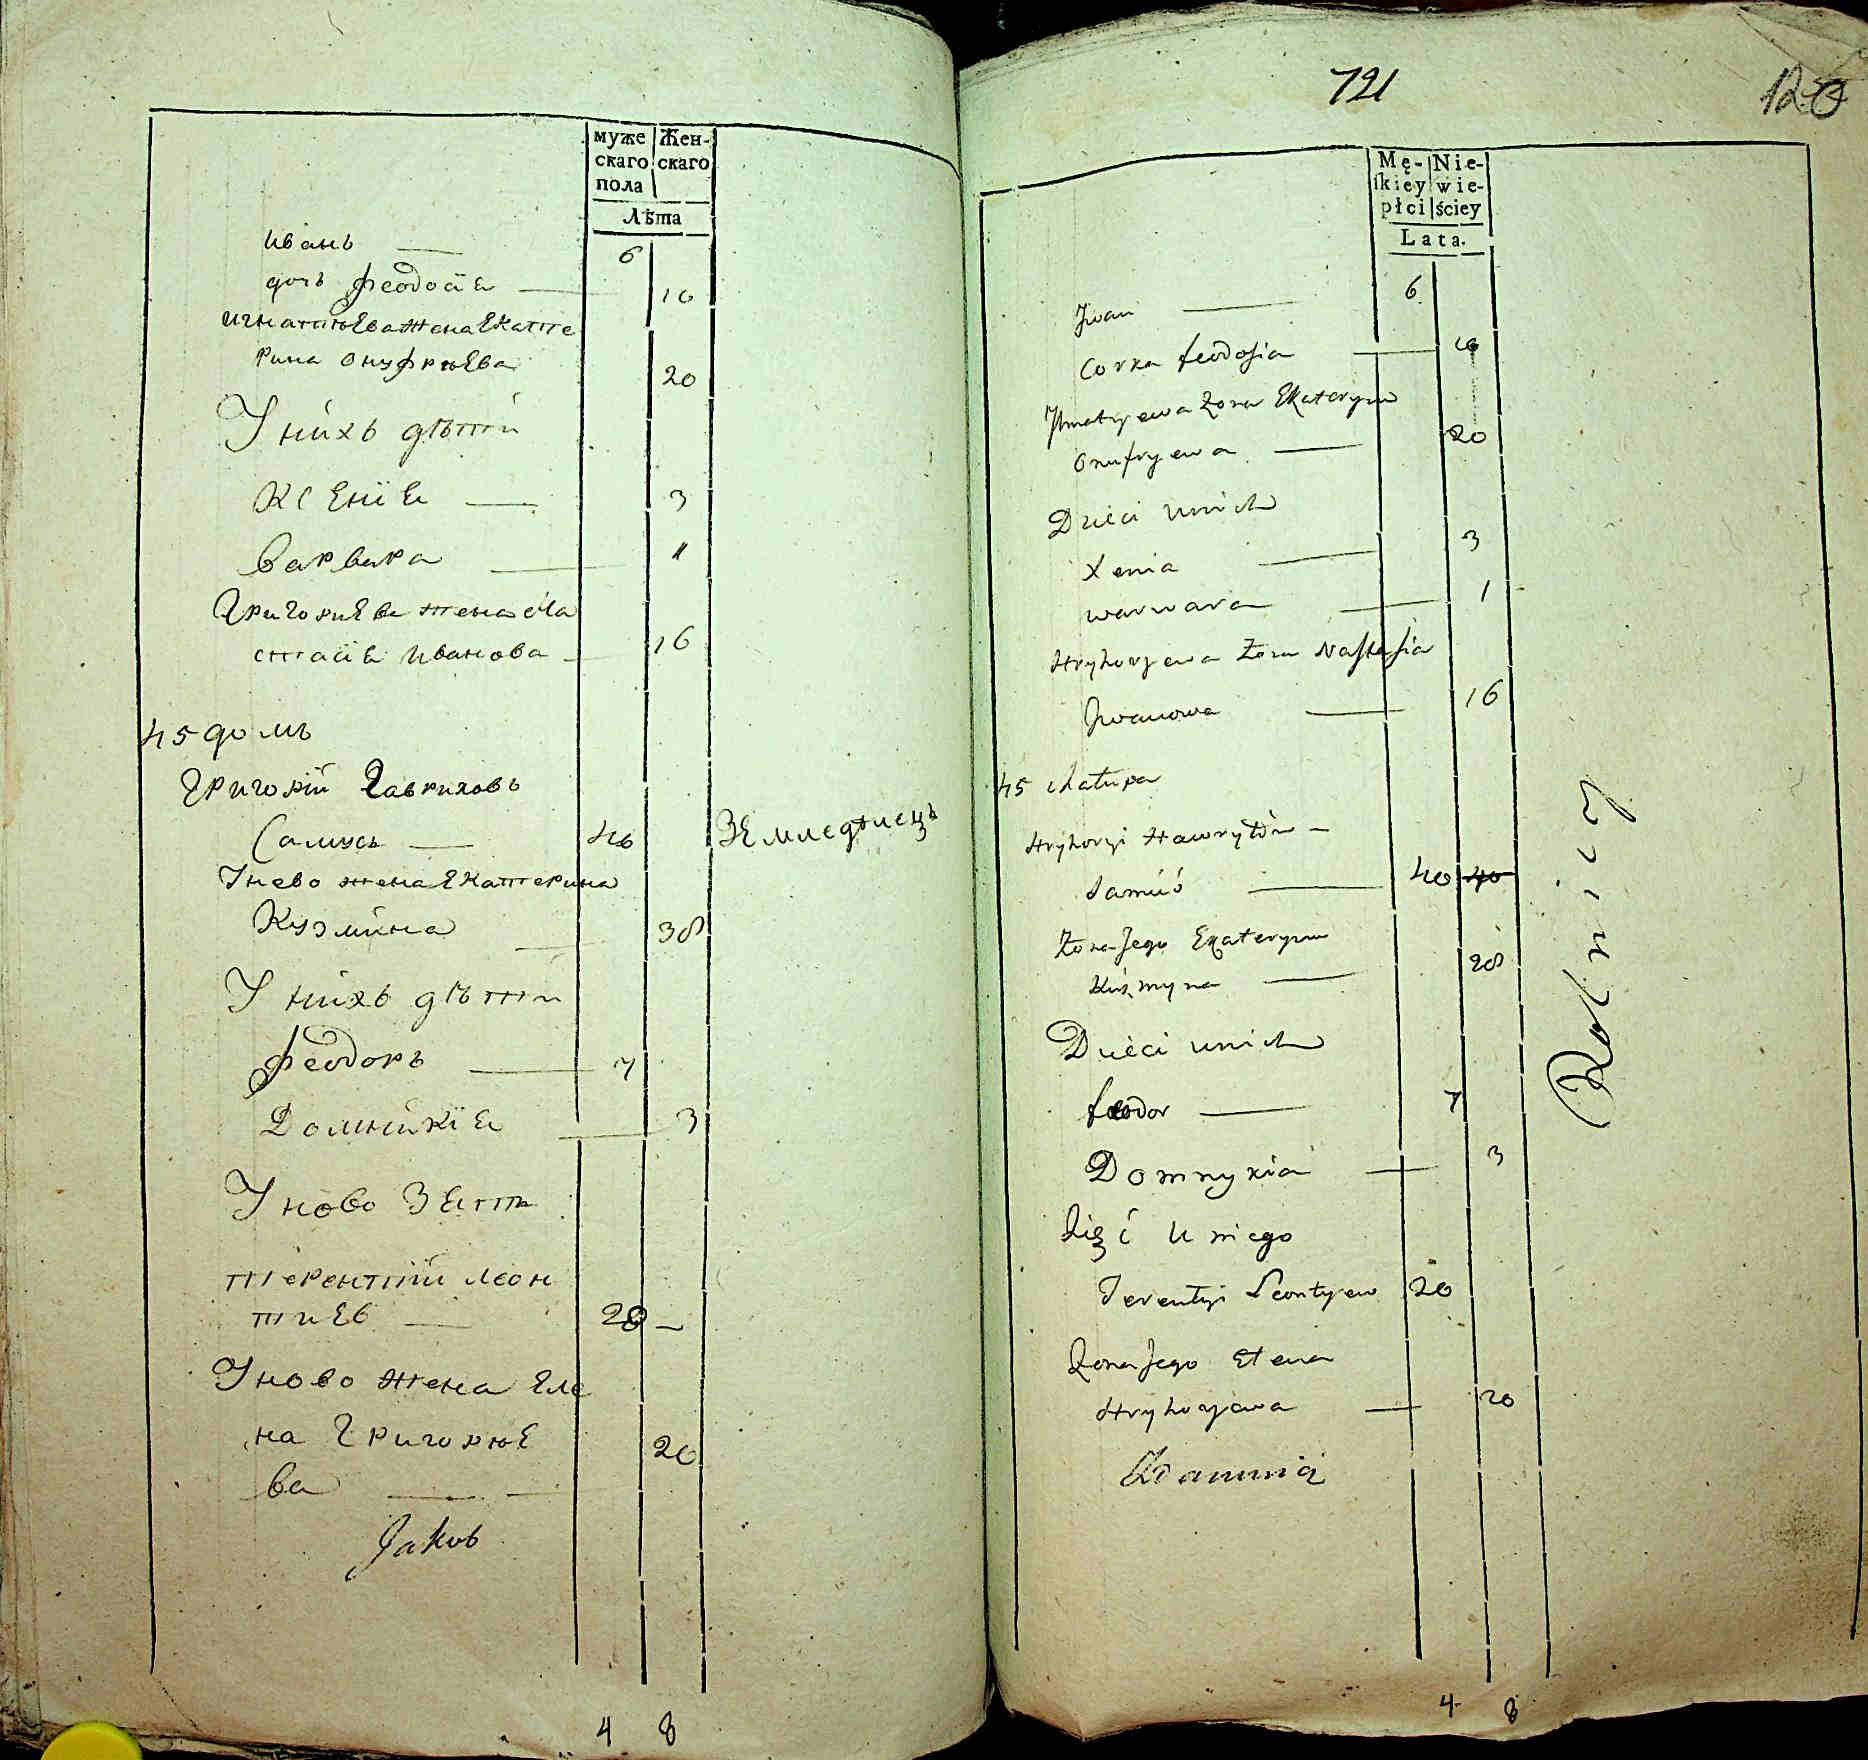 муже Жен-
скаго скаго
пола
Лѣта
Иванъ — 6
дочь Феодосія — 10
Игнатіева жена Екате
рина Онуфріева 20
У нихъ дѣти
Ксенія — 3
Варвара — 1
Григоріева жена
Иванова — 16
45 домъ
Григорій Гавриловъ
Самусь — 40 Земледѣлецъ
У нево жена Екатерина
Кузмина — 38
У нихъ дѣти
Феодоръ — 7
Домникія — 3
У ново зять
Терентій Леон
тиев — 20 —
У ново жена Еле
на Григорье 20
ва —
Jakub
4 8
721
120
Mę- Nie-
ſkiey wie-
płci ściey
Lata.
Jwan — 6
Corka feodosia — 10
Jhnatyewa Zona Ekateryna
Onufryewa — 20
Dzieci unich
Xenia — 3
warwara — 1
Hryhoryewa Zona Nastasia
Jwanowa — 16
45 chałupa
Hryhoryi Hawryłów —
Samuś — 40 40
Zona Jego Ekateryna
Kuźmyna — 28
Dzieci unich
feodor — 7
Domnykia — 3
Zięć U niego
Terentyi Leontyew 20
Zona Jego Elena
Hryhoryewa — 20
Rolniczy
4 8